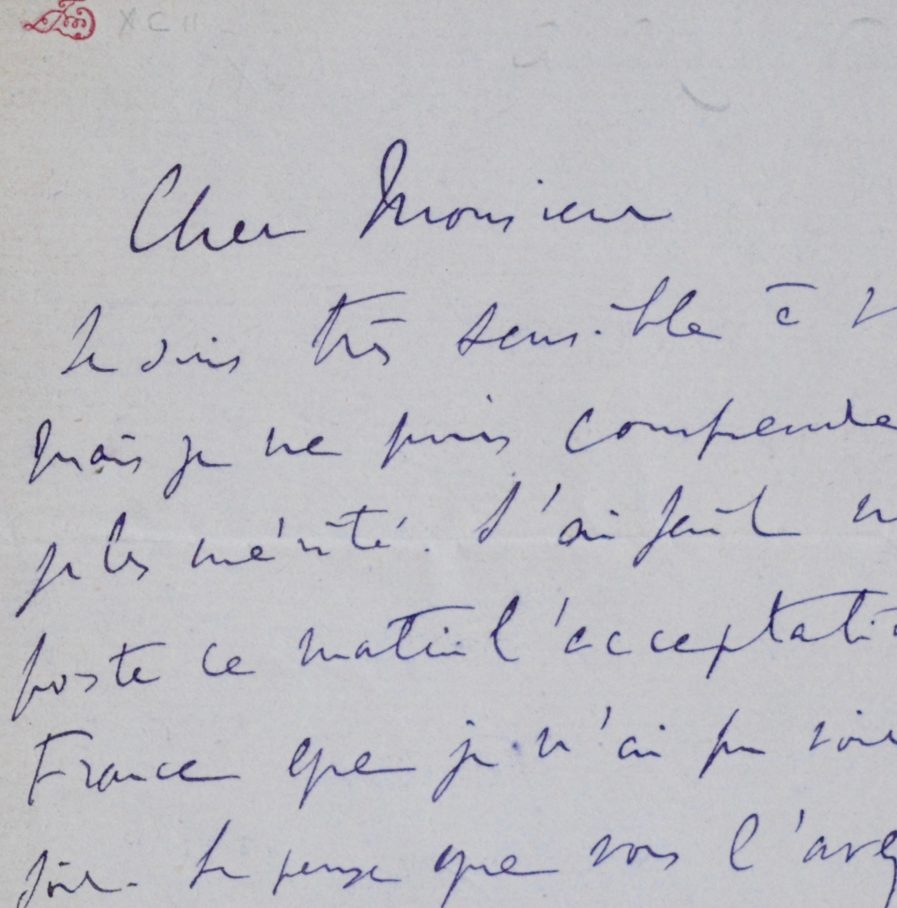 XCII
Cher Monsieur
Je suis très sensible à
Mais je ne puis comprendre
je les mérite. J'ai fait
poste ce matin l'acceptatio
France que je n'ai pu voir
soir. Je pense que vous l'avez